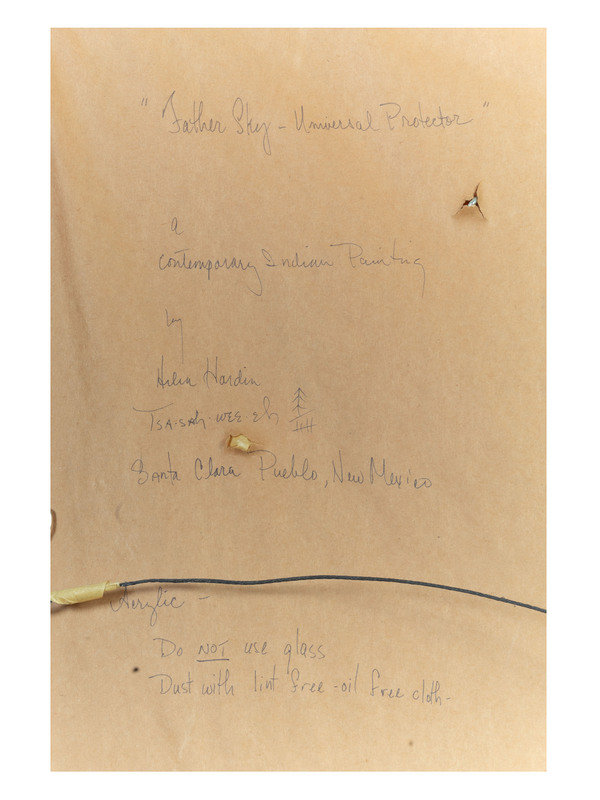 "Father Sky - Universal Protector"
a
contemporary Indian Painting
by
Helen Hardin
Tsa-sah-wee-eh
Santa Clara Pueblo, New Mexico
Acrylic -
Do NOT use glass
Dust with lint free - oil free cloth -